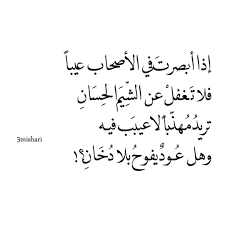 إذا أبصرتَ في الأصحاب عيباً
فلا تَغفلْ عن الشِّيَم الحِسَانِ
تريدُ مُهذّباً لا عيبَ فيه
وهل عُودٌ يفوحُ بلا دُخَانِ؟!
3mishari